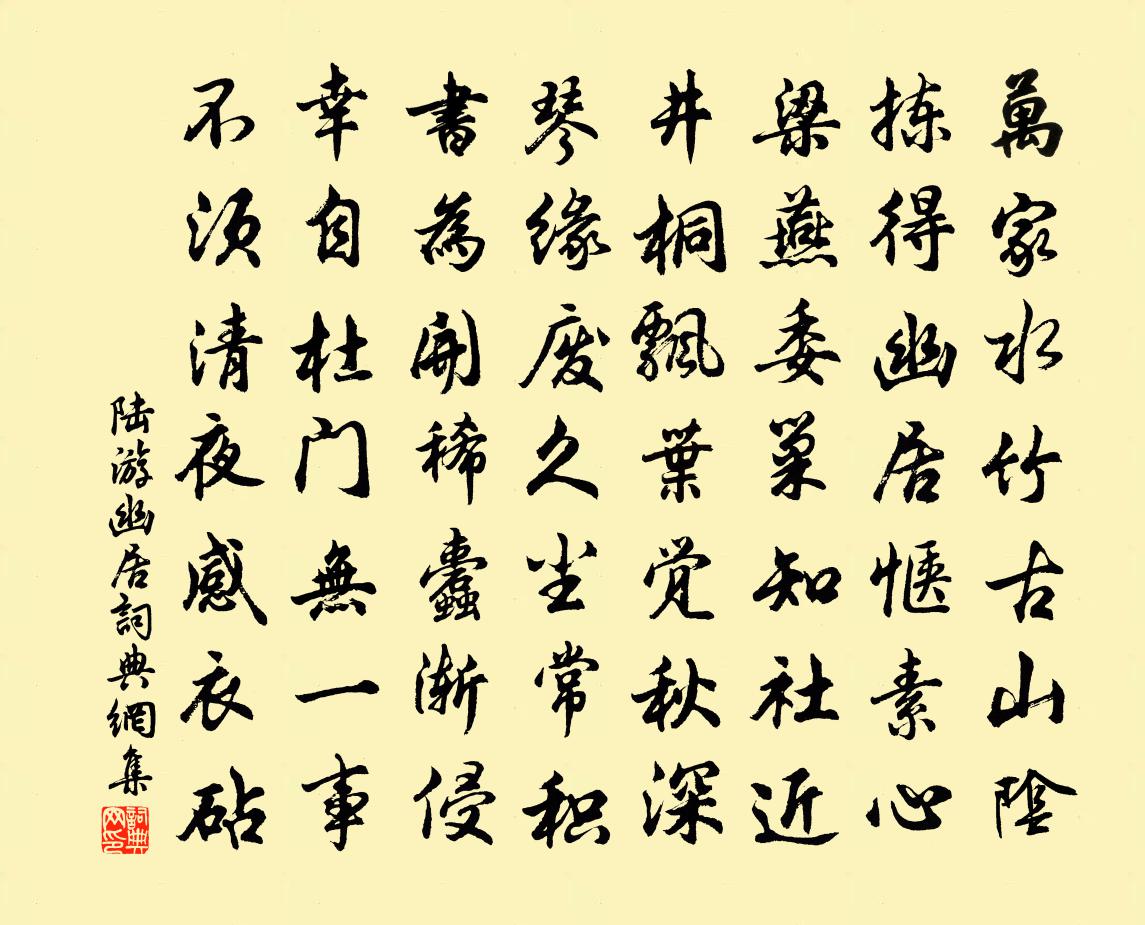 萬家水竹古山陰
拣得幽居惬素心
梁燕委巢知社近
井桐飄葉觉秋深
琴緣废久尘常积
書為開稀蠹渐侵
幸自杜门無一事
不须清夜感衣砧
陆游幽居詞典網集
詞典网印